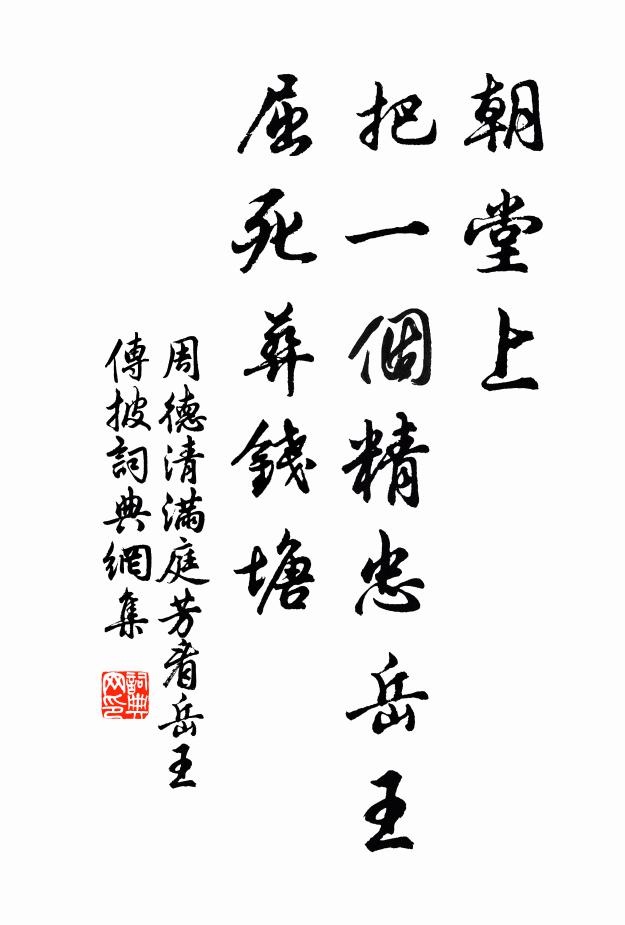 朝堂上
把一個精忠岳王
屈死葬錢塘
周德清滿庭芳看岳王
傳披詞典網集
詞典
网印